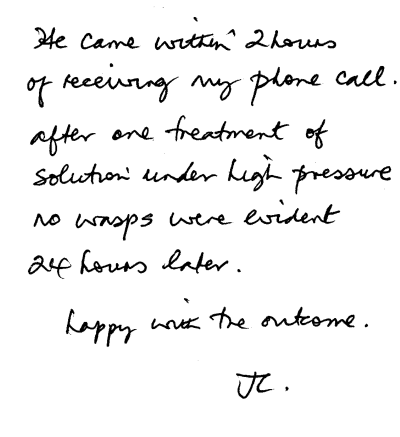 He came within 2 hours
of receiving my phone call.
after one treatment of
solution under high pressure
no wasps were evident
24 hours later.
happy with the outcome.
JC.